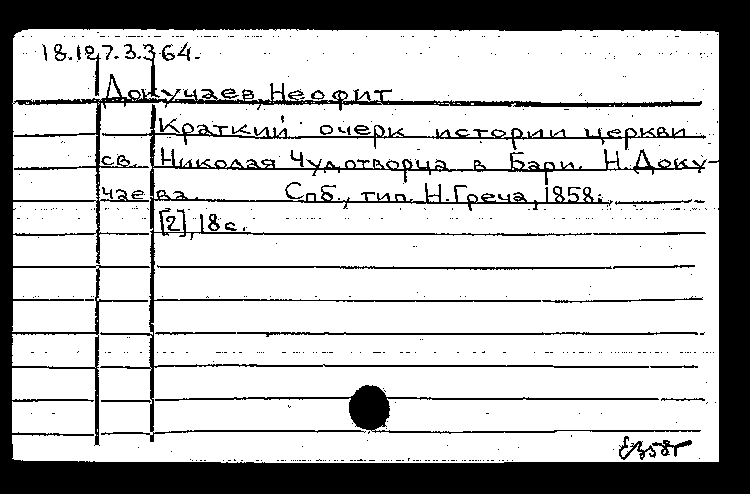 18.127.3.364.
Докучаев, Неофит
Краткий очерк истории церкви
св. Николая Чудотворца в Бари. Н. Доку-
чаева. Спб., тип. Н. Греча, 1858.
[2], 18 с.